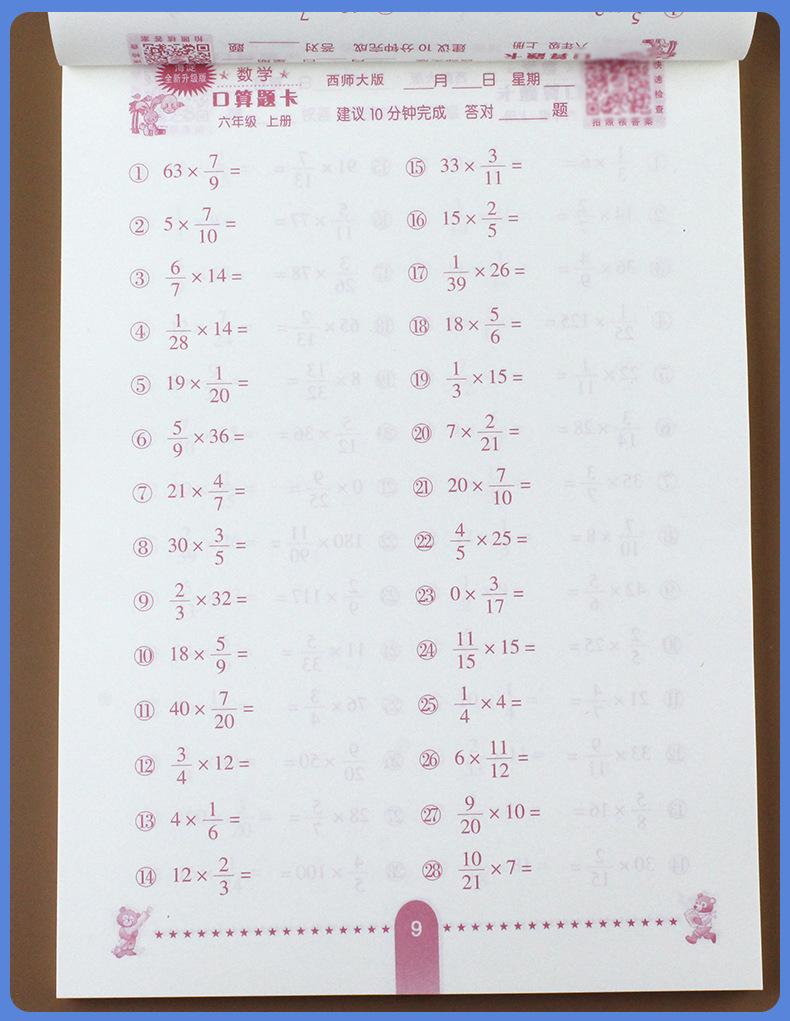 全新升级版
★ 数学 ★ 西师大版 ____月____日 星期____
口算题卡
六年级 上册 建议10分钟完成 答对____题
快速检查
拍照核答案
① 63 × 7/9 =
② 5 × 7/10 =
③ 6/7 × 14 =
④ 1/28 × 14 =
⑤ 19 × 1/20 =
⑥ 5/9 × 36 =
⑦ 21 × 4/7 =
⑧ 30 × 3/5 =
⑨ 2/3 × 32 =
⑩ 18 × 5/9 =
⑪ 40 × 7/20 =
⑫ 3/4 × 12 =
⑬ 4 × 1/6 =
⑭ 12 × 2/3 =
⑮ 33 × 3/11 =
⑯ 15 × 2/5 =
⑰ 1/39 × 26 =
⑱ 18 × 5/6 =
⑲ 1/3 × 15 =
⑳ 7 × 2/21 =
㉑ 20 × 7/10 =
㉒ 4/5 × 25 =
㉓ 0 × 3/17 =
㉔ 11/15 × 15 =
㉕ 1/4 × 4 =
㉖ 6 × 11/12 =
㉗ 9/20 × 10 =
㉘ 10/21 × 7 =
9